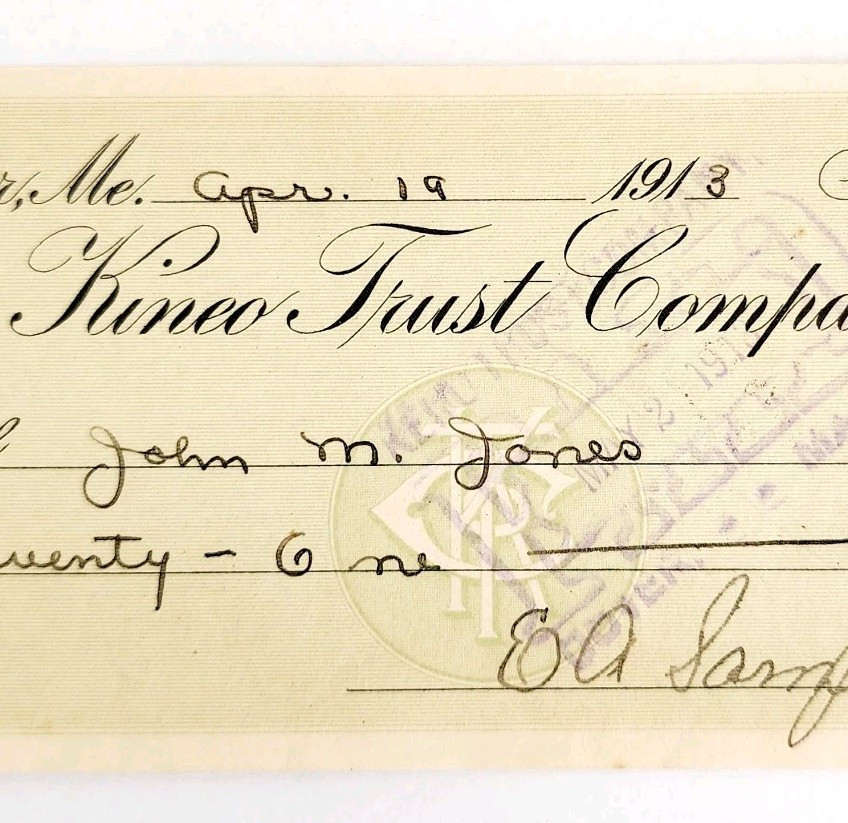 r, Me. Apr. 19 1913
Kineo Trust Compa
John M. Jones
wenty - One
EA Samp
MAY 2 191
DOVER,